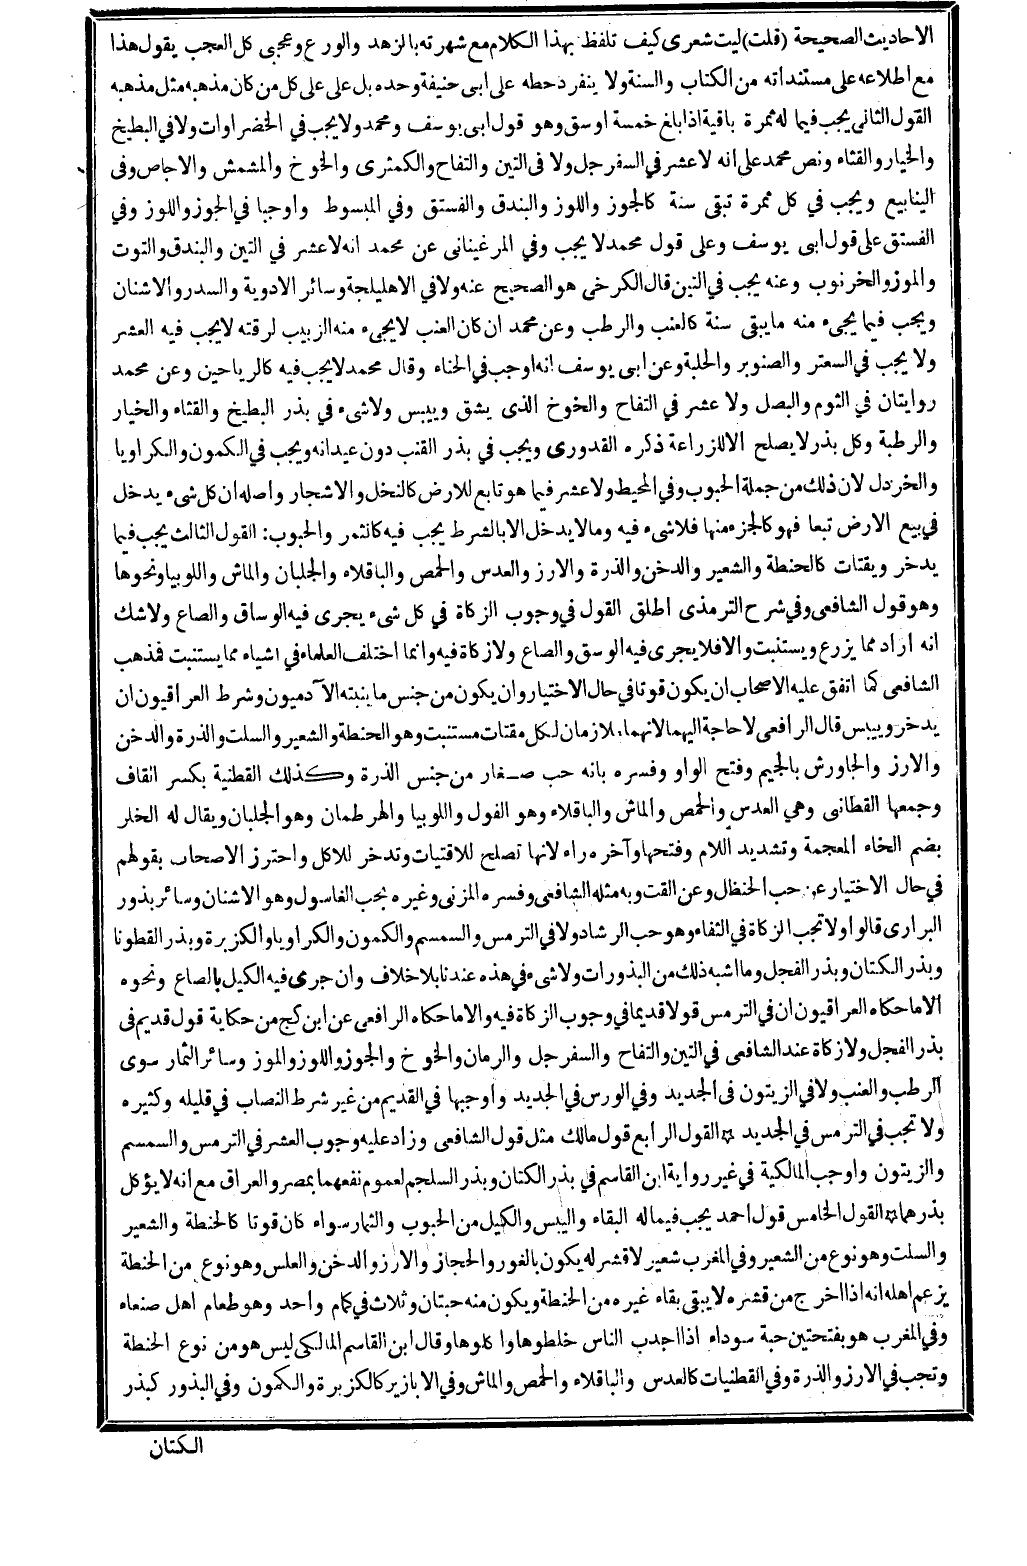 الاحاديث الصحيحة (قلت) ليت شعرى كيف تلفظ بهذا الكلام مع شهرته بالزهد والورع وعجبى كل العجب يقول هذا
مع اطلاعه على مستنداته من الكتاب والسنة ولا ينفرد حطه على ابى حنيفة وحده بل على على كل من كان مذهبه مثل مذهبه
القول الثانى يجب فيما له ثمرة باقية اذا بلغ خمسة اوسق وهو قول ابى يوسف ومحمد ولا يجب في الخضراوات ولا في البطيخ
والخيار والقثاء ونص محمد على انه لا عشر في السفرجل ولا فى التين والتفاح والكمثرى والخوخ والمشمش والاجاص وفى
الينابيع ويجب في كل ثمرة تبقى سنة كالجوز واللوز والبندق والفستق وفي المبسوط واوجبا في الجوز واللوز وفي
الفستق على قول ابى يوسف وعلى قول محمد لا يجب وفي المرغينانى عن محمد انه لا عشر في التين والبندق والتوت
والموز والخرنوب وعنه يجب في التين قال الكرخى هو الصحيح عنه ولا في الاهليلجة وسائر الادوية والسدر والاشنان
ويجب فيما يجىء منه ما يبقى سنة كالعنب والرطب وعن محمد ان كان العنب لا يجىء منه الزبيب لرقته لا يجب فيه العشر
ولا يجب في السعتر والصنوبر والحلبة وعن ابى يوسف انه اوجب في الحناء وقال محمد لا يجب فيه كالرياحين وعن محمد
روايتان في الثوم والبصل ولا عشر في التفاح والخوخ الذى يشق وييبس ولا شىء في بذر البطيخ والقثاء والخيار
والرطبة وكل بذر لا يصلح الا للزراعة ذكره القدورى ويجب في بذر القنب دون عيدانه ويجب في الكمون والكراويا
والخردل لان ذلك من جملة الحبوب وفي المحيط ولا عشر فيما هو تابع للارض كالنخل والاشجار واصله ان كل شىء يدخل
في بيع الارض تبعا فهو كالجزء منها فلا شىء فيه وما لا يدخل الا بالشرط يجب فيه كالثمر والحبوب: القول الثالث يجب فيما
يدخر ويقتات كالحنطة والشعير والدخن والذرة والارز والعدس والحمص والباقلاء والجلبان والماش واللوبيا ونحوها
وهو قول الشافعى وفي شرح الترمذى اطلق القول في وجوب الزكاة في كل شىء يجرى فيه الوساق والصاع ولا شك
انه اراد مما يزرع ويستنبت والا فلا يجرى فيه الوسق والصاع ولا زكاة فيه وانما اختلف العلماء في اشياء مما يستنبت فمذهب
الشافعى كما اتفق عليه الاصحاب ان يكون قوتا في حال الاختيار وان يكون من جنس ما ينبته الآدميون وشرط العراقيون ان
يدخر وييبس قال الرافعى لا حاجة اليهما لانهما يلازمان لكل مقتات مستنبت وهو الحنطة والشعير والسلت والذرة والدخن
والارز والجاورش بالجيم وفتح الواو وفسره بانه حب صغار من جنس الذرة وكذلك القطنية بكسر القاف
وجمعها القطانى وهي العدس والحمص والماش والباقلاء وهو الفول واللوبيا والهرطمان وهو الجلبان ويقال له الخلر
بضم الخاء المعجمة وتشديد اللام وفتحها وآخره راء لانها تصلح للاقتيات وتدخر للاكل واحترز الاصحاب بقولهم
في حال الاختيار عن حب الحنظل وعن القت وبه مثله الشافعى وفسره المزنى وغيره بحب الغاسول وهو الاشنان وسائر بذور
البرارى قالوا ولا تجب الزكاة في الثفاء وهو حب الرشاد ولا في الترمس والسمسم والكمون والكراويا والكزبرة وبذر القطونا
وبذر الكتان وبذر الفجل وما اشبه ذلك من البذورات ولا شىء في هذه عندنا بلا خلاف وان جرى فيه الكيل بالصاع ونحوه
الا ما حكاه العراقيون ان في الترمس قولا قديما في وجوب الزكاة فيه والا ما حكاه الرافعى عن ابن كج من حكاية قول قديم فى
بذر الفجل ولا زكاة عند الشافعى في التين والتفاح والسفرجل والرمان والخوخ والجوز واللوز والموز وسائر الثمار سوى
الرطب والعنب ولا في الزيتون فى الجديد وفي الورس في الجديد واوجبها في القديم من غير شرط النصاب في قليله وكثيره
ولا تجب في الترمس في الجديد * القول الرابع قول مالك مثل قول الشافعى وزاد عليه وجوب العشر في الترمس والسمسم
والزيتون واوجب المالكية في غير رواية ابن القاسم في بذر الكتان وبذر السلجم لعموم نفعهما بمصر والعراق مع انه لا يؤكل
بذرهما * القول الخامس قول احمد يجب فيما له البقاء واليبس والكيل من الحبوب والثمار سواء كان قوتا كالحنطة والشعير
والسلت وهو نوع من الشعير وفي المغرب شعير لا قشر له يكون بالغور والحجاز والارز والدخن والعلس وهو نوع من الحنطة
يزعم اهله انه اذا اخرج من قشره لا يبقى بقاء غيره من الحنطة ويكون منه حبتان وثلاث في كمام واحد وهو طعام اهل صنعاء
وفي المغرب هو بفتحتين حبة سوداء اذا اجدب الناس خلطوها واكلوها وقال ابن القاسم المالكى ليس هو من نوع الحنطة
وتجب في الارز والذرة وفي القطنيات كالعدس والباقلاء والحمص والماش وفي الابازير كالكزبرة والكمون وفي البذور كبذر
الكتان